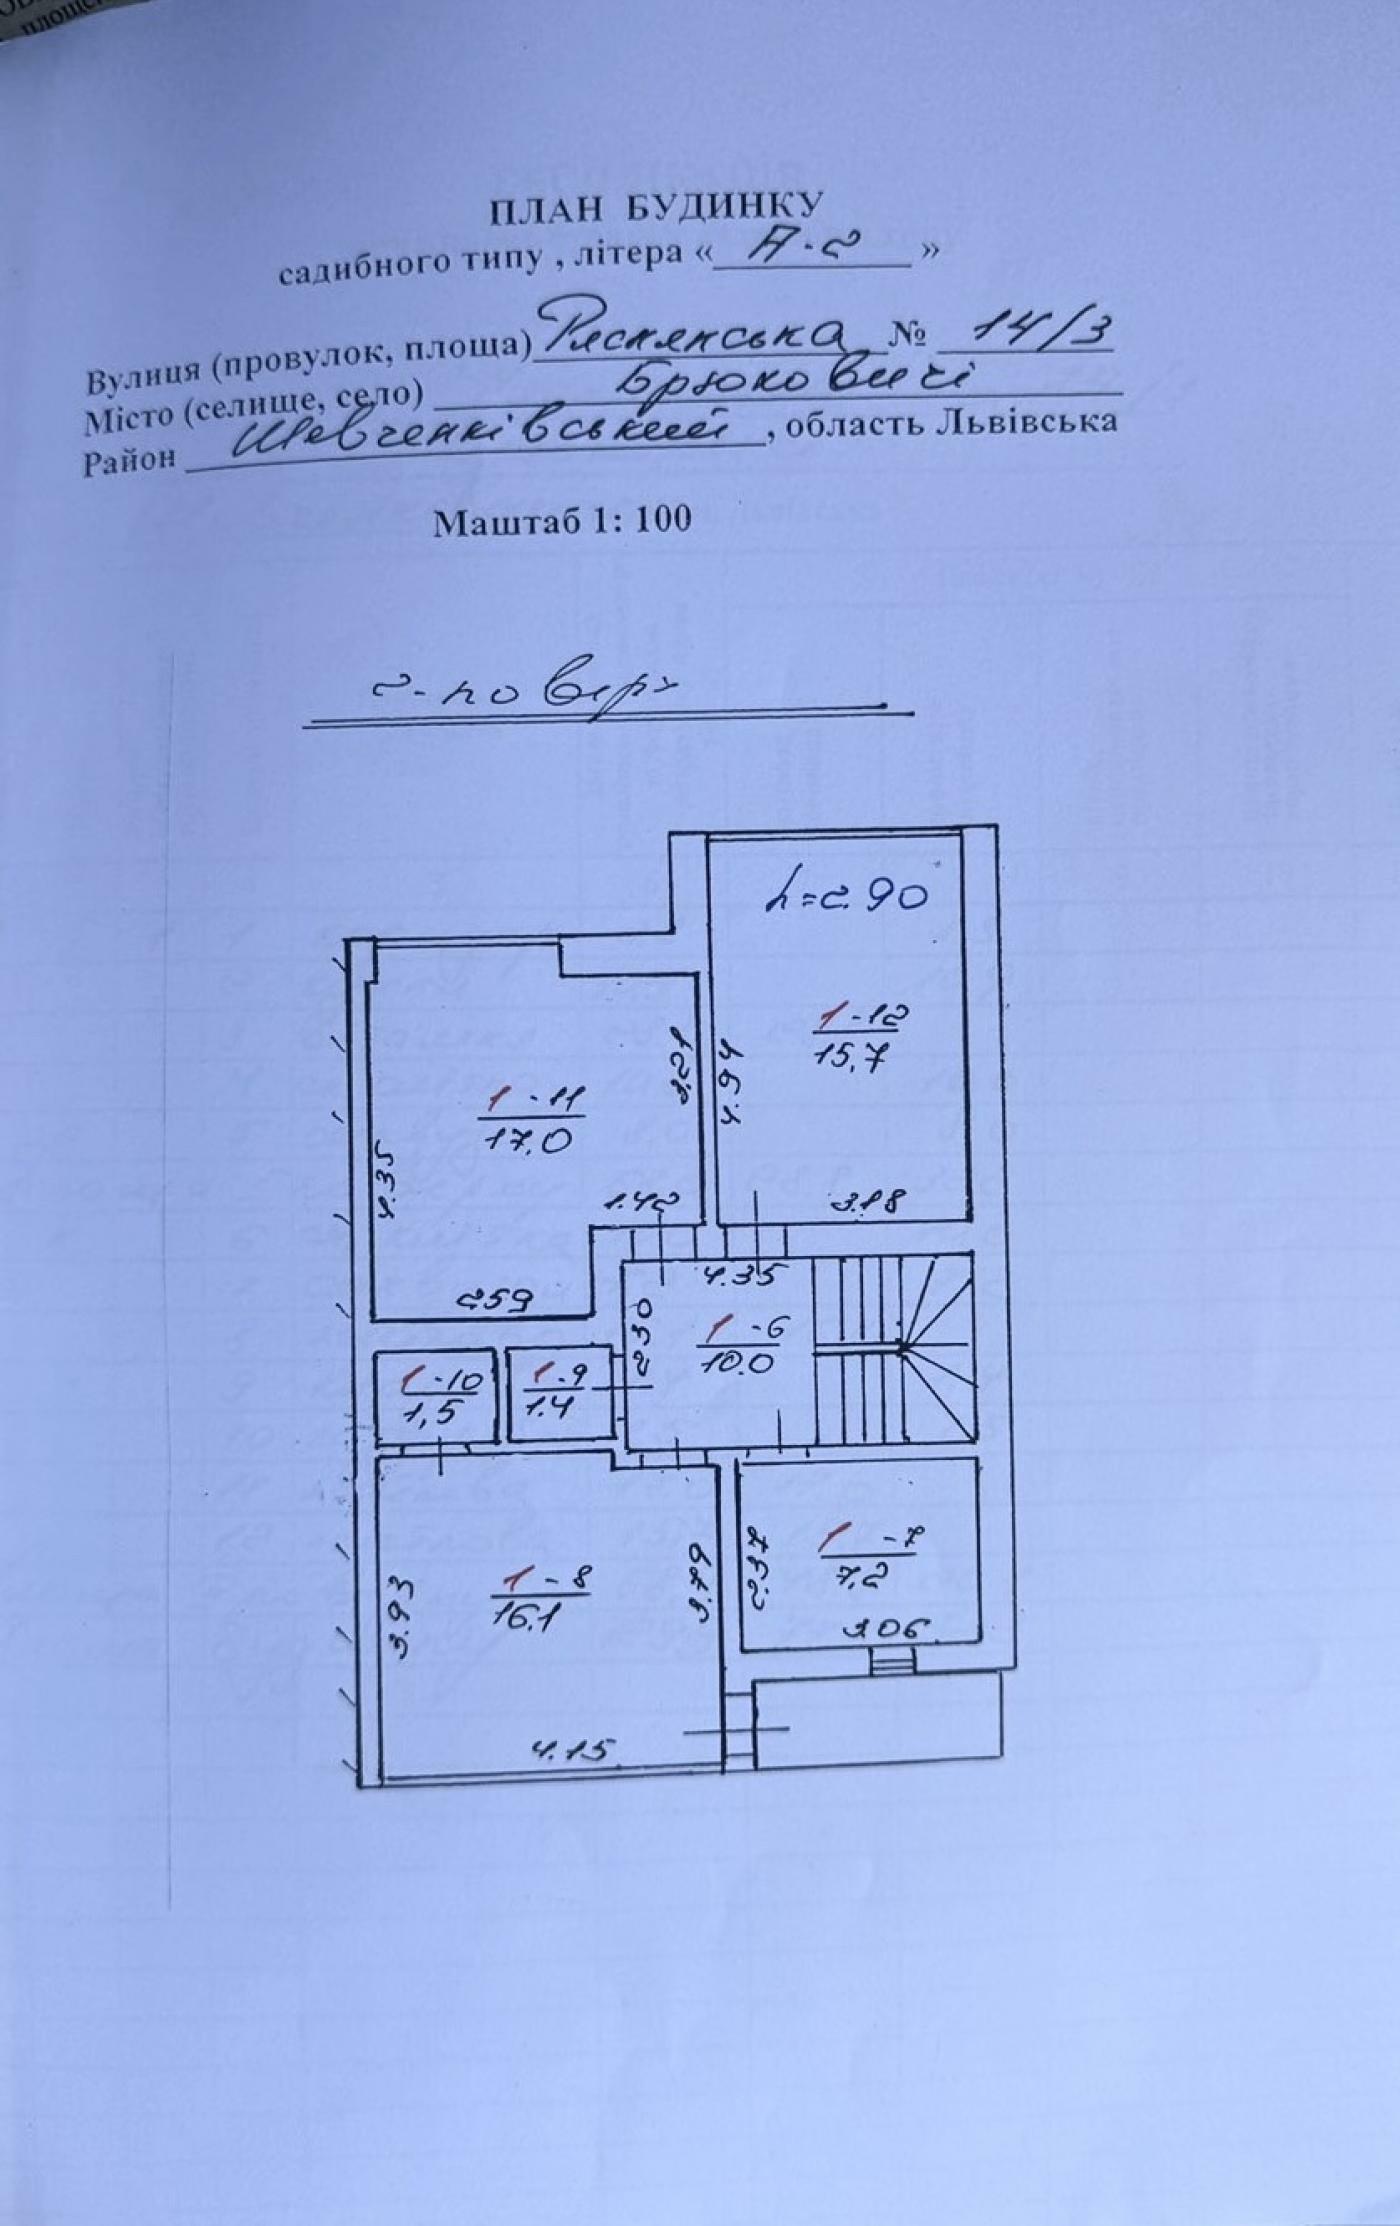 площе
ПЛАН БУДИНКУ
садибного типу , літера « А-2 »
Вулиця (провулок, площа) Ряснянська № 14/3
Місто (селище, село) Брюховичі
Район Шевченківський , область Львівська
Маштаб 1: 100
2-поверх
h=2.90
1-12
15,7
4.94
3.18
1-11
17,0
3,21
4.35
1.42
259
4.35
2 30
1-6
10.0
1-10
1,5
1-9
1.4
1-8
16.1
3.93
3.79
4.15
1-7
7,2
2.37
3.06